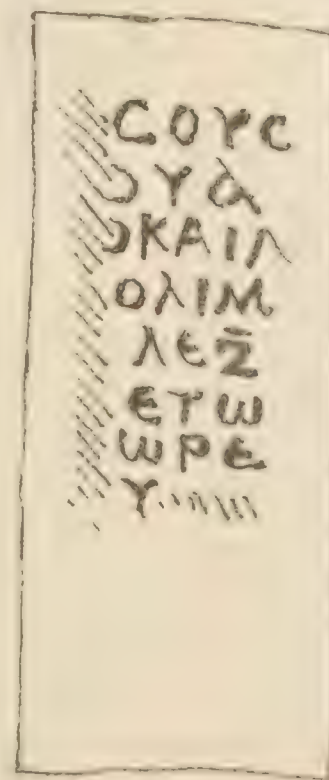 ϹΟΥϹ
ΟΥΑ
ΟΚΑΙΛ
ΟΛΙΜ
ΛΕΞ
ΕΤω
ωΡΕ
Υ